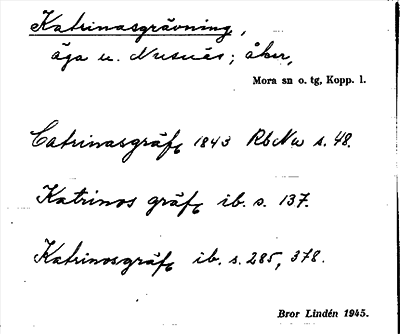 Katrinasgrävning,
äga u. Nusnäs; åker,
Mora sn o. tg, Kopp. l.
Catrinasgräfg 1843 RbNu s. 48.
Katrinos gräfg ib. s. 137.
Katrinosgräfg ib. s. 285, 378.
Bror Lindén 1945.